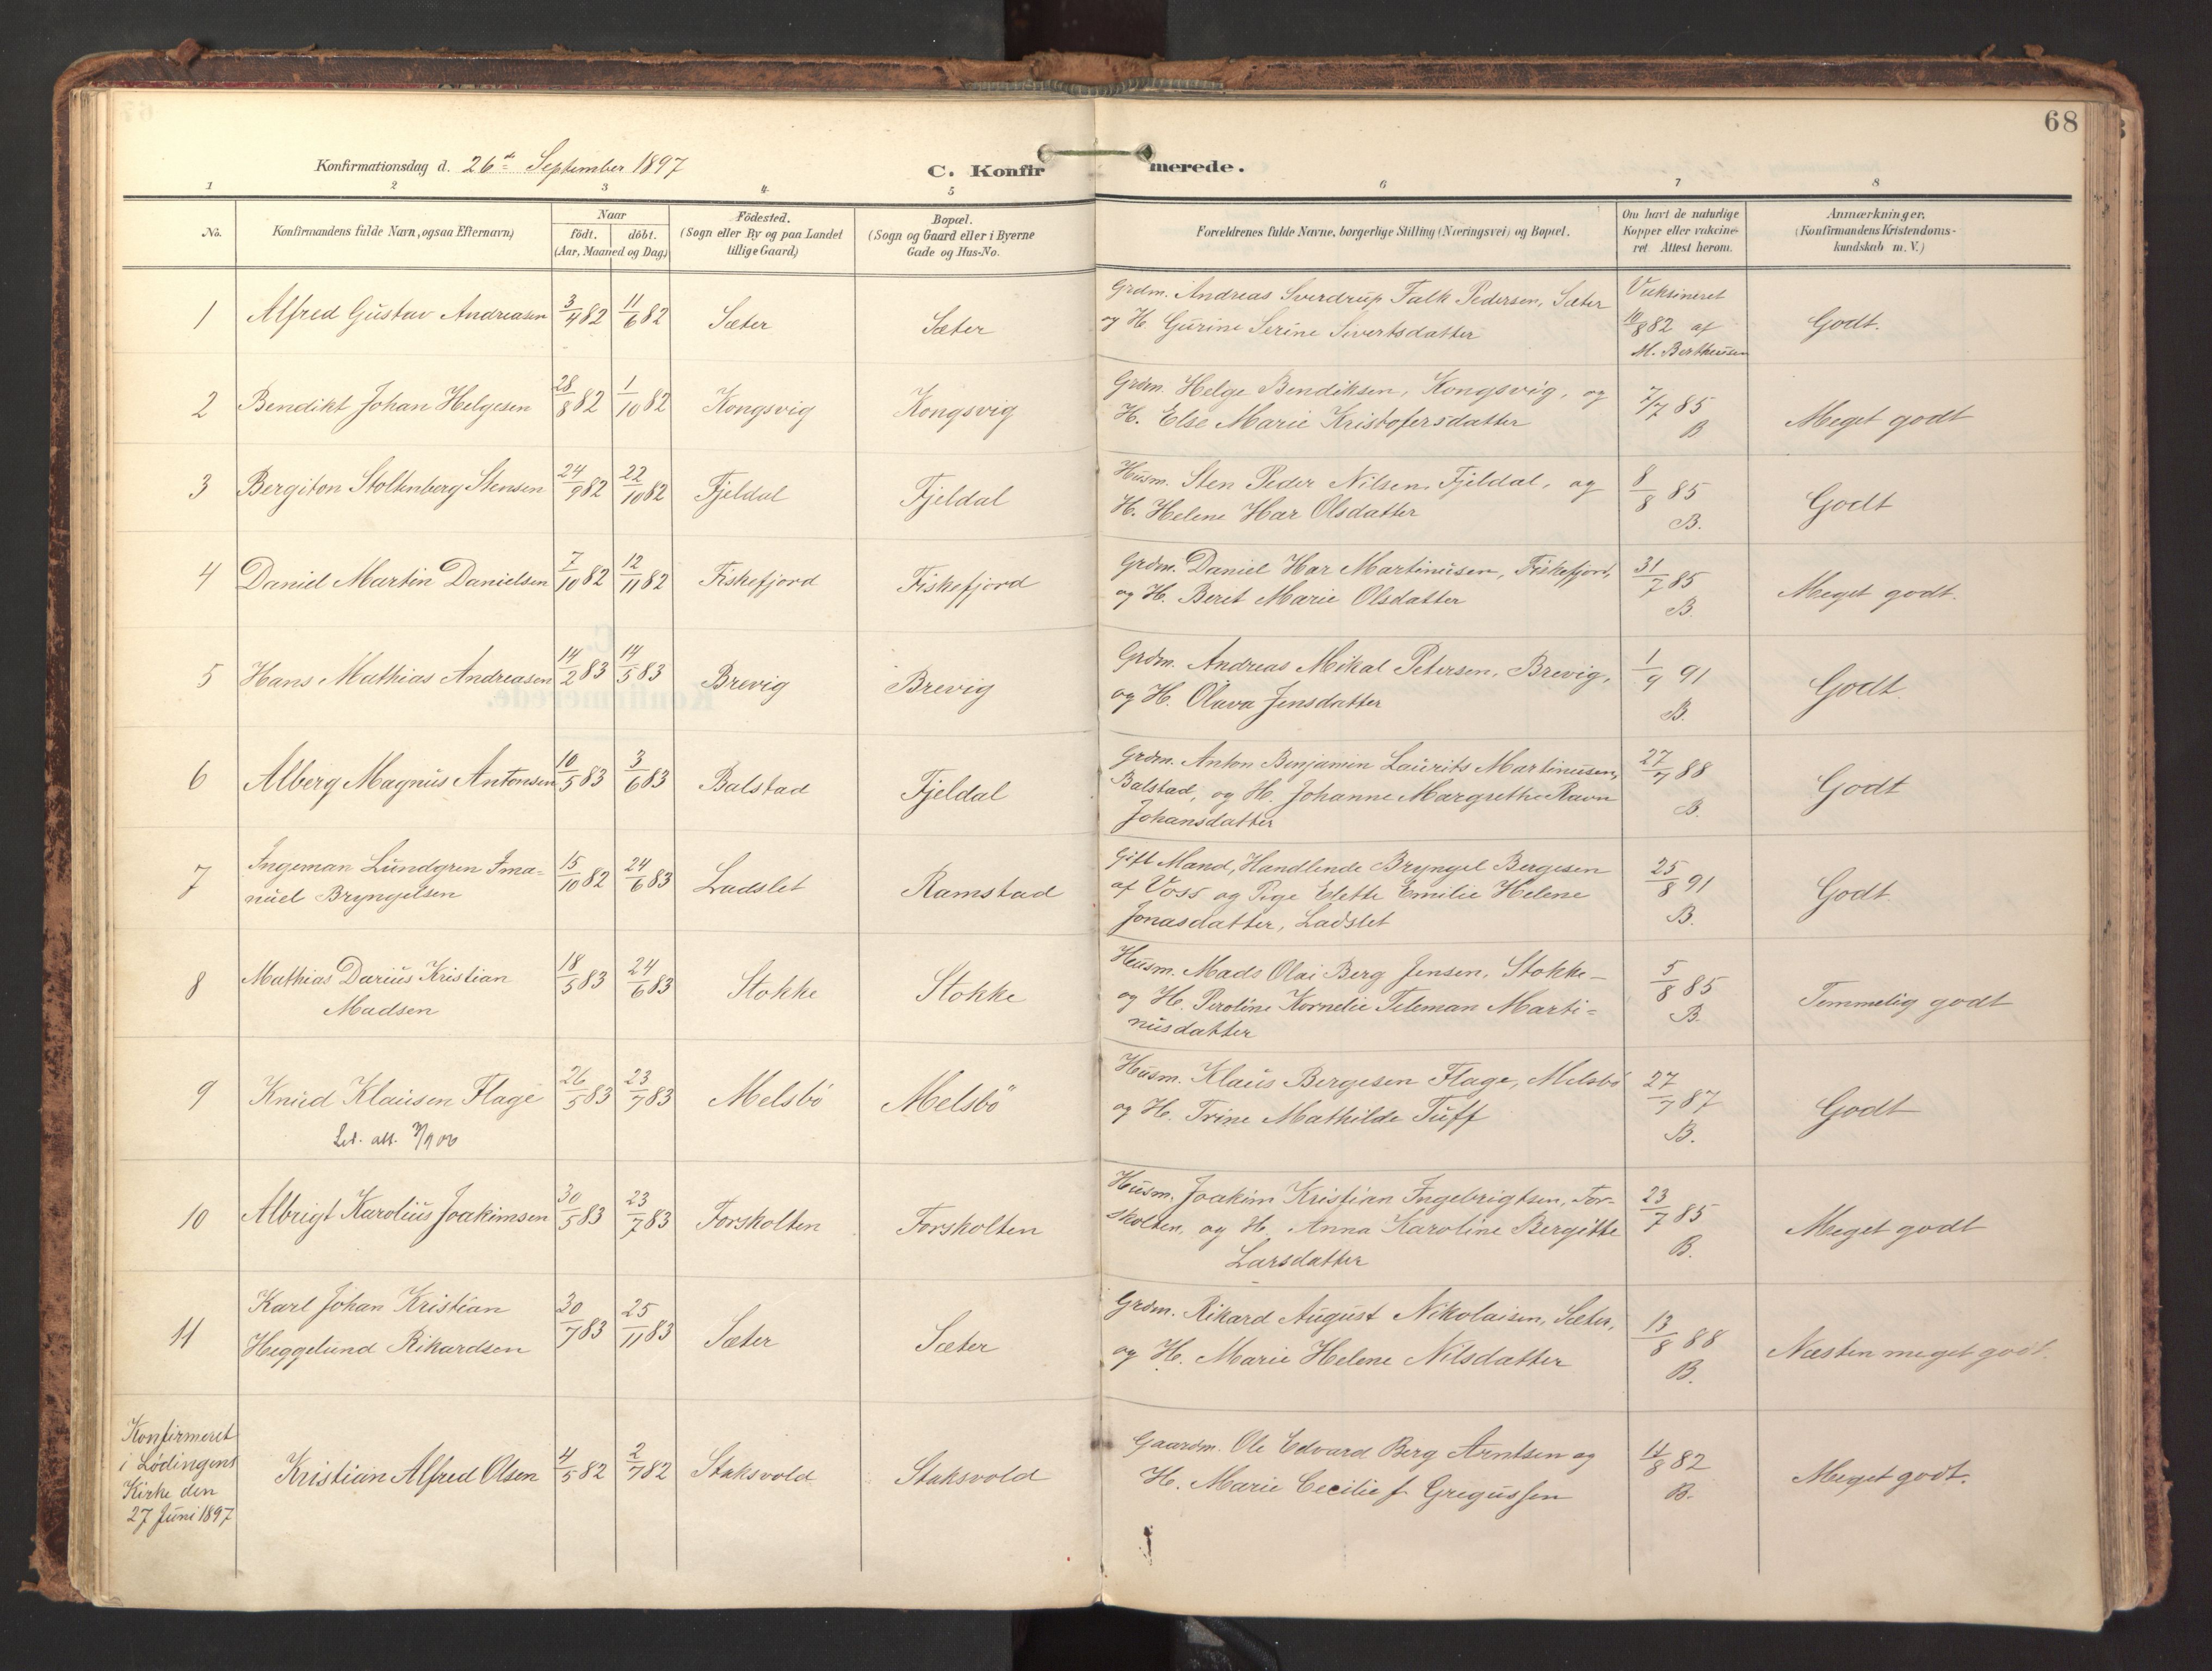 68
Konfirmationsdag d. 26de September 1897
C. Konfirmerede.
1 2 3 4 5 6 7 8
No. Konfirmandens fulde Navn, ogsaa Efternavn) Naar födt. döbt. (Aar, Maaned og Dag) Födested. (Sogn eller By og paa Landet tillige Gaard) Bopæl. (Sogn og Gaard eller i Byerne Gade og Hus-No. Forældrenes fulde Navne, borgerlige Stilling (Næringsvei) og Bopæl. Om havt de naturlige Kopper eller vakcineret. Attest herom. Anmærkninger. (Konfirmandens Kristendomskundskab m. V.)
1 Alfred Gustav Andreasen 3/4 82 11/6 82 Sæter Sæter Grdm. Andreas Sverdrup Falk Pedersen, Sæter
og H. Gurine Serine Sivertsdatter Vaksineret 10/8 82 af M. Bertheusen Godt.
2 Bendikt Johan Helgesen 28/8 82 1/10 82 Kongsvig Kongsvig Grdm. Helge Bendiksen, Kongsvig, og
H. Else Marie Kristofersdatter 7/7 85 B Meget godt
3 Bergiton Stoltenberg Stensen 24/9 82 22/10 82 Fjeldal Fjeldal Husm. Sten Peder Nilsen, Fjeldal, og
H. Helene Har Olsdatter 8/8 85 B. Godt
4 Daniel Martin Danielsen 7/10 82 12/11 82 Fiskefjord Fiskefjord Grdm. Daniel Har Martinusen, Fiskefjord,
og H. Beret Marie Olsdatter 31/7 85 B. Meget godt.
5 Hans Mathias Andreasen 14/2 83 14/5 83 Brevig Brevig Grdm. Andreas Mikal Petersen, Brevig,
og H. Olava Jensdatter 1/9 91 B. Godt.
6 Alberg Magnus Antonsen 10/5 83 3/6 83 Balstad Fjeldal Grdm. Anton Benjamin Laurits Martinusen,
Balstad, og H. Johanne Margrethe Ravn
Johansdatter 27/7 88 B. Godt
7 Ingeman Lundgren Ima-
nuel Bryngelsen 15/10 82 24/6 83 Ladslet Ramstad Gift Mand, Handlende Bryngel Bergesen
af Voss og Pige Elette Emilie Helene
Jonasdatter, Ladslet 25/8 91 B. Godt.
8 Mathias Darius Kristian
Madsen 18/5 83 24/6 83 Stokke Stokke Husm. Mads Olai Berg Jensen, Stokke –
og H. Peroline Kornelie Teleman Marti-
nusdatter 5/8 85 B. Temmelig godt
9 Knud Klausen Flage 26/5 83 23/7 83 Melsbö Melsbö Husm. Klaus Bergesen Flage, Melsbö
og H. Trine Mathilde Tuff 27/7 87 B. Godt
10 Albrigt Karolius Joakimsen 30/5 83 23/7 83 Forskolten Forskolten Husm. Joakim Kristian Ingebrigtsen, For-
skolten, og H. Anna Karoline Bergitte
Larsdatter 23/7 85 B. Meget godt
11 Karl Johan Kristian
Heggelund Rikardsen 30/7 83 25/11 83 Sæter Sæter Grdm. Rikard August Nikolaisen, Sæter,
og H. Marie Helene Nilsdatter 13/8 88 B. Næsten meget godt.
Konfirmeret
i Lødingens
Kirke den
27 Juni 1897
Kristian Alfred Olsen 4/5 82 2/7 82 Staksvold Staksvold Gaardm. Ole Edvard Berg Arntsen og
H. Marie Cecilie f. Gregussen 14/8 82 B. Meget godt.